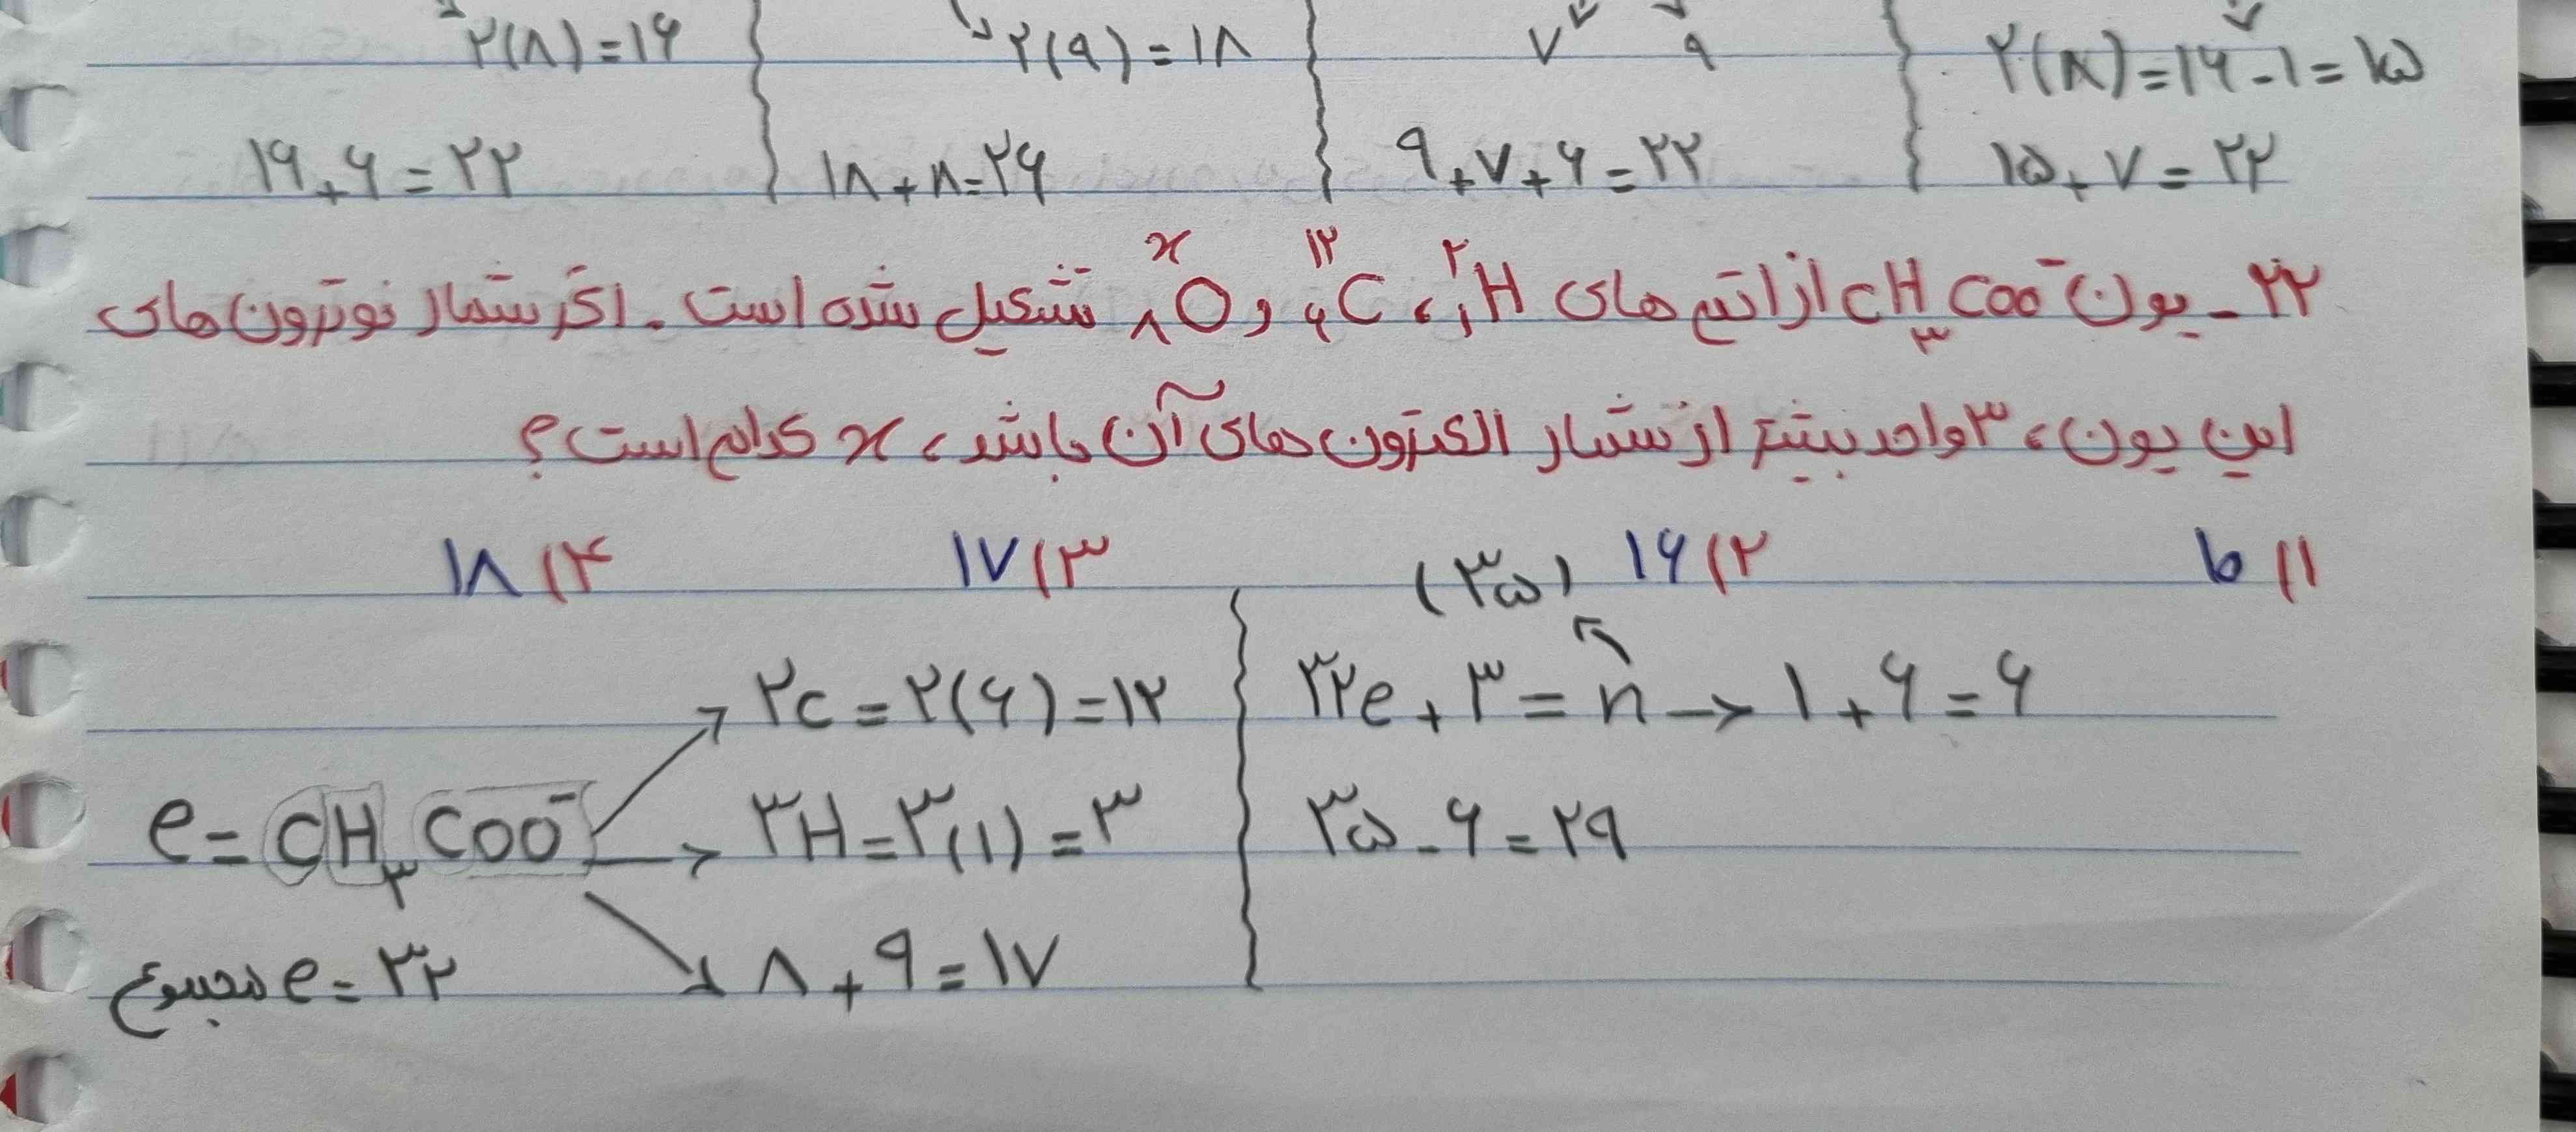 ۲(۸)=۱۶-۱=۱۵ ۷ ۹ ۲(۹)=۱۸ ۲(۸)=۱۶
۱۵+۷=۲۲ ۹+۷+۶=۲۲ ۱۸+۸=۲۶ ۱۶+۶=۲۲
۲۲- یون CH₃COO⁻ از اتم های ²₁H، ¹²₆C و ˣ₈O تشکیل شده است. اگر شمار نوترون های
این یون، ۳ واحد بیشتر از شمار الکترون های آن باشد، x کدام است؟
۱) ۱۵ ۲) ۱۶ ۳) ۱۷ ۴) ۱۸
(۳۵)
۲C=۲(۶)=۱۲ ۳۲e+۳=n→۱+۶=۶
e=CH₃COO⁻ ۳H=۳(۱)=۳ ۳۵-۶=۲۹
مجموع e=۳۲ ۸+۹=۱۷